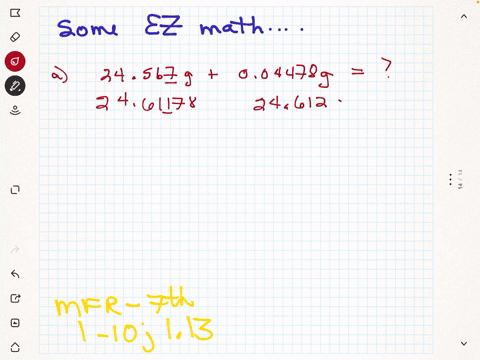 Some EZ math....
a) 24.567g + 0.04478g = ?
24.61178 24.612.
MFR - 7th
1-10; 1.13
14 / 14